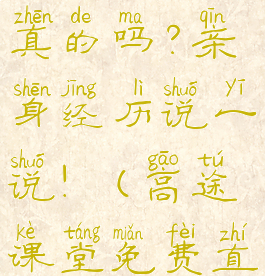 zhēn de ma qīn
真的吗?亲
shēn jīng lì shuō yī
身经历说一
shuō gāo tú
说!(高途
kè táng miǎn fèi zhí
课堂免费直